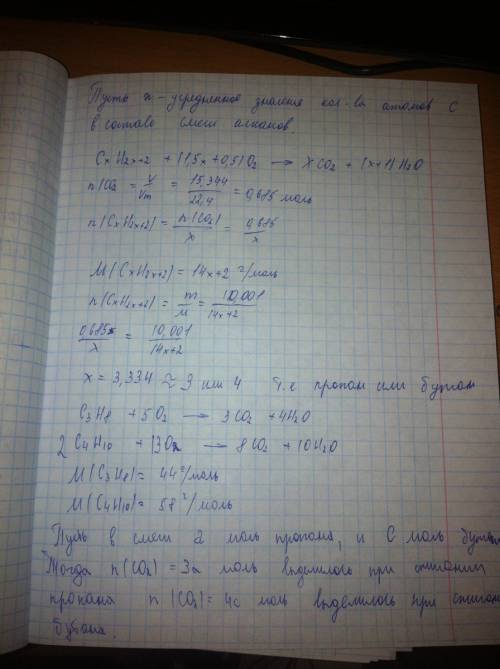 Пусть x – усредненное значение кол-ва атомов C
в составе смеси алканов
CxH2x+2 + (1,5x + 0,5)O2 → XCO2 + (x+1)H2O
n(CO2 = V/Vm = 15,344/22,4 = 0,685 моль
n(CxH2x+2) = n(CO2)/x = 0,685/x
M(CxH2x+2) = 14x+2 г/моль
n(CxH2x+2) = m/M = 10,001/14x+2
0,685/x = 10,001/14x+2
x = 3,334 ≈ 3 или 4 т.е пропан или бутан
C3H8 + 5O2 → 3CO2 + 4H2O
2 C4H10 + 13O2 → 8CO2 + 10H2O
M(C3H8) = 44 г/моль
M(C4H10) = 58 г/моль
Пусть в смеси a моль пропана, и C моль
Тогда n(CO2) = 3a моль выделилось при сжигании
пропана n(CO2) = 4c моль выделилось при
бутана.